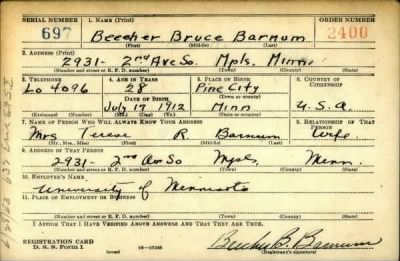 SERIAL NUMBER 1. NAME (Print) ORDER NUMBER
697 Beecher Bruce Barnum 2400
(First) (Middle) (Last)
2. ADDRESS (Print)
2931- 2nd Ave So. Mpls. Minn.
(Number and street or R. F. D. number) (Town) (County) (State)
3. TELEPHONE 4. AGE IN YEARS 5. PLACE OF BIRTH 6. COUNTRY OF CITIZENSHIP
Lo 4096 28 Pine City
DATE OF BIRTH
July 17 1912 Minn U.S.A.
(Exchange) (Number) (Mo.) (Day) (Yr.) (State or country)
7. NAME OF PERSON WHO WILL ALWAYS KNOW YOUR ADDRESS 8. RELATIONSHIP OF THAT PERSON
Mrs Terese R. Barnum Wife
(Mr., Mrs., Miss) (First) (Middle) (Last)
9. ADDRESS OF THAT PERSON
2931- 2nd Ave So Mpls. Minn.
(Number and street or R. F. D. number) (Town) (County) (State)
10. EMPLOYER'S NAME
University of Minnesota
11. PLACE OF EMPLOYMENT OR BUSINESS
(Number and street or R. F. D. number) (Town) (County) (State)
I AFFIRM THAT I HAVE VERIFIED ABOVE ANSWERS AND THAT THEY ARE TRUE.
REGISTRATION CARD
D. S. S. Form 1 (over) Beecher B. Barnum
(Registrant's signature)